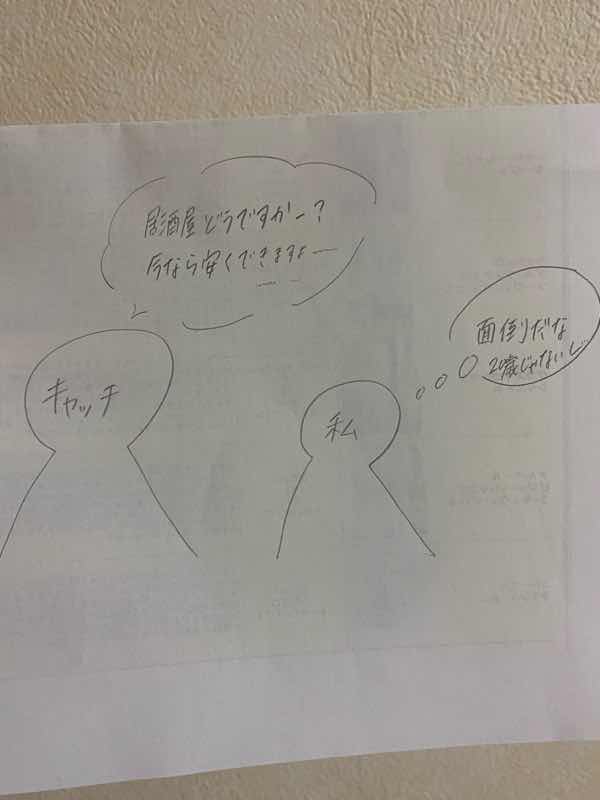 居酒屋どうですかー?
今なら安くできますよー
キャッチ
私
面倒だな
20歳じゃないし